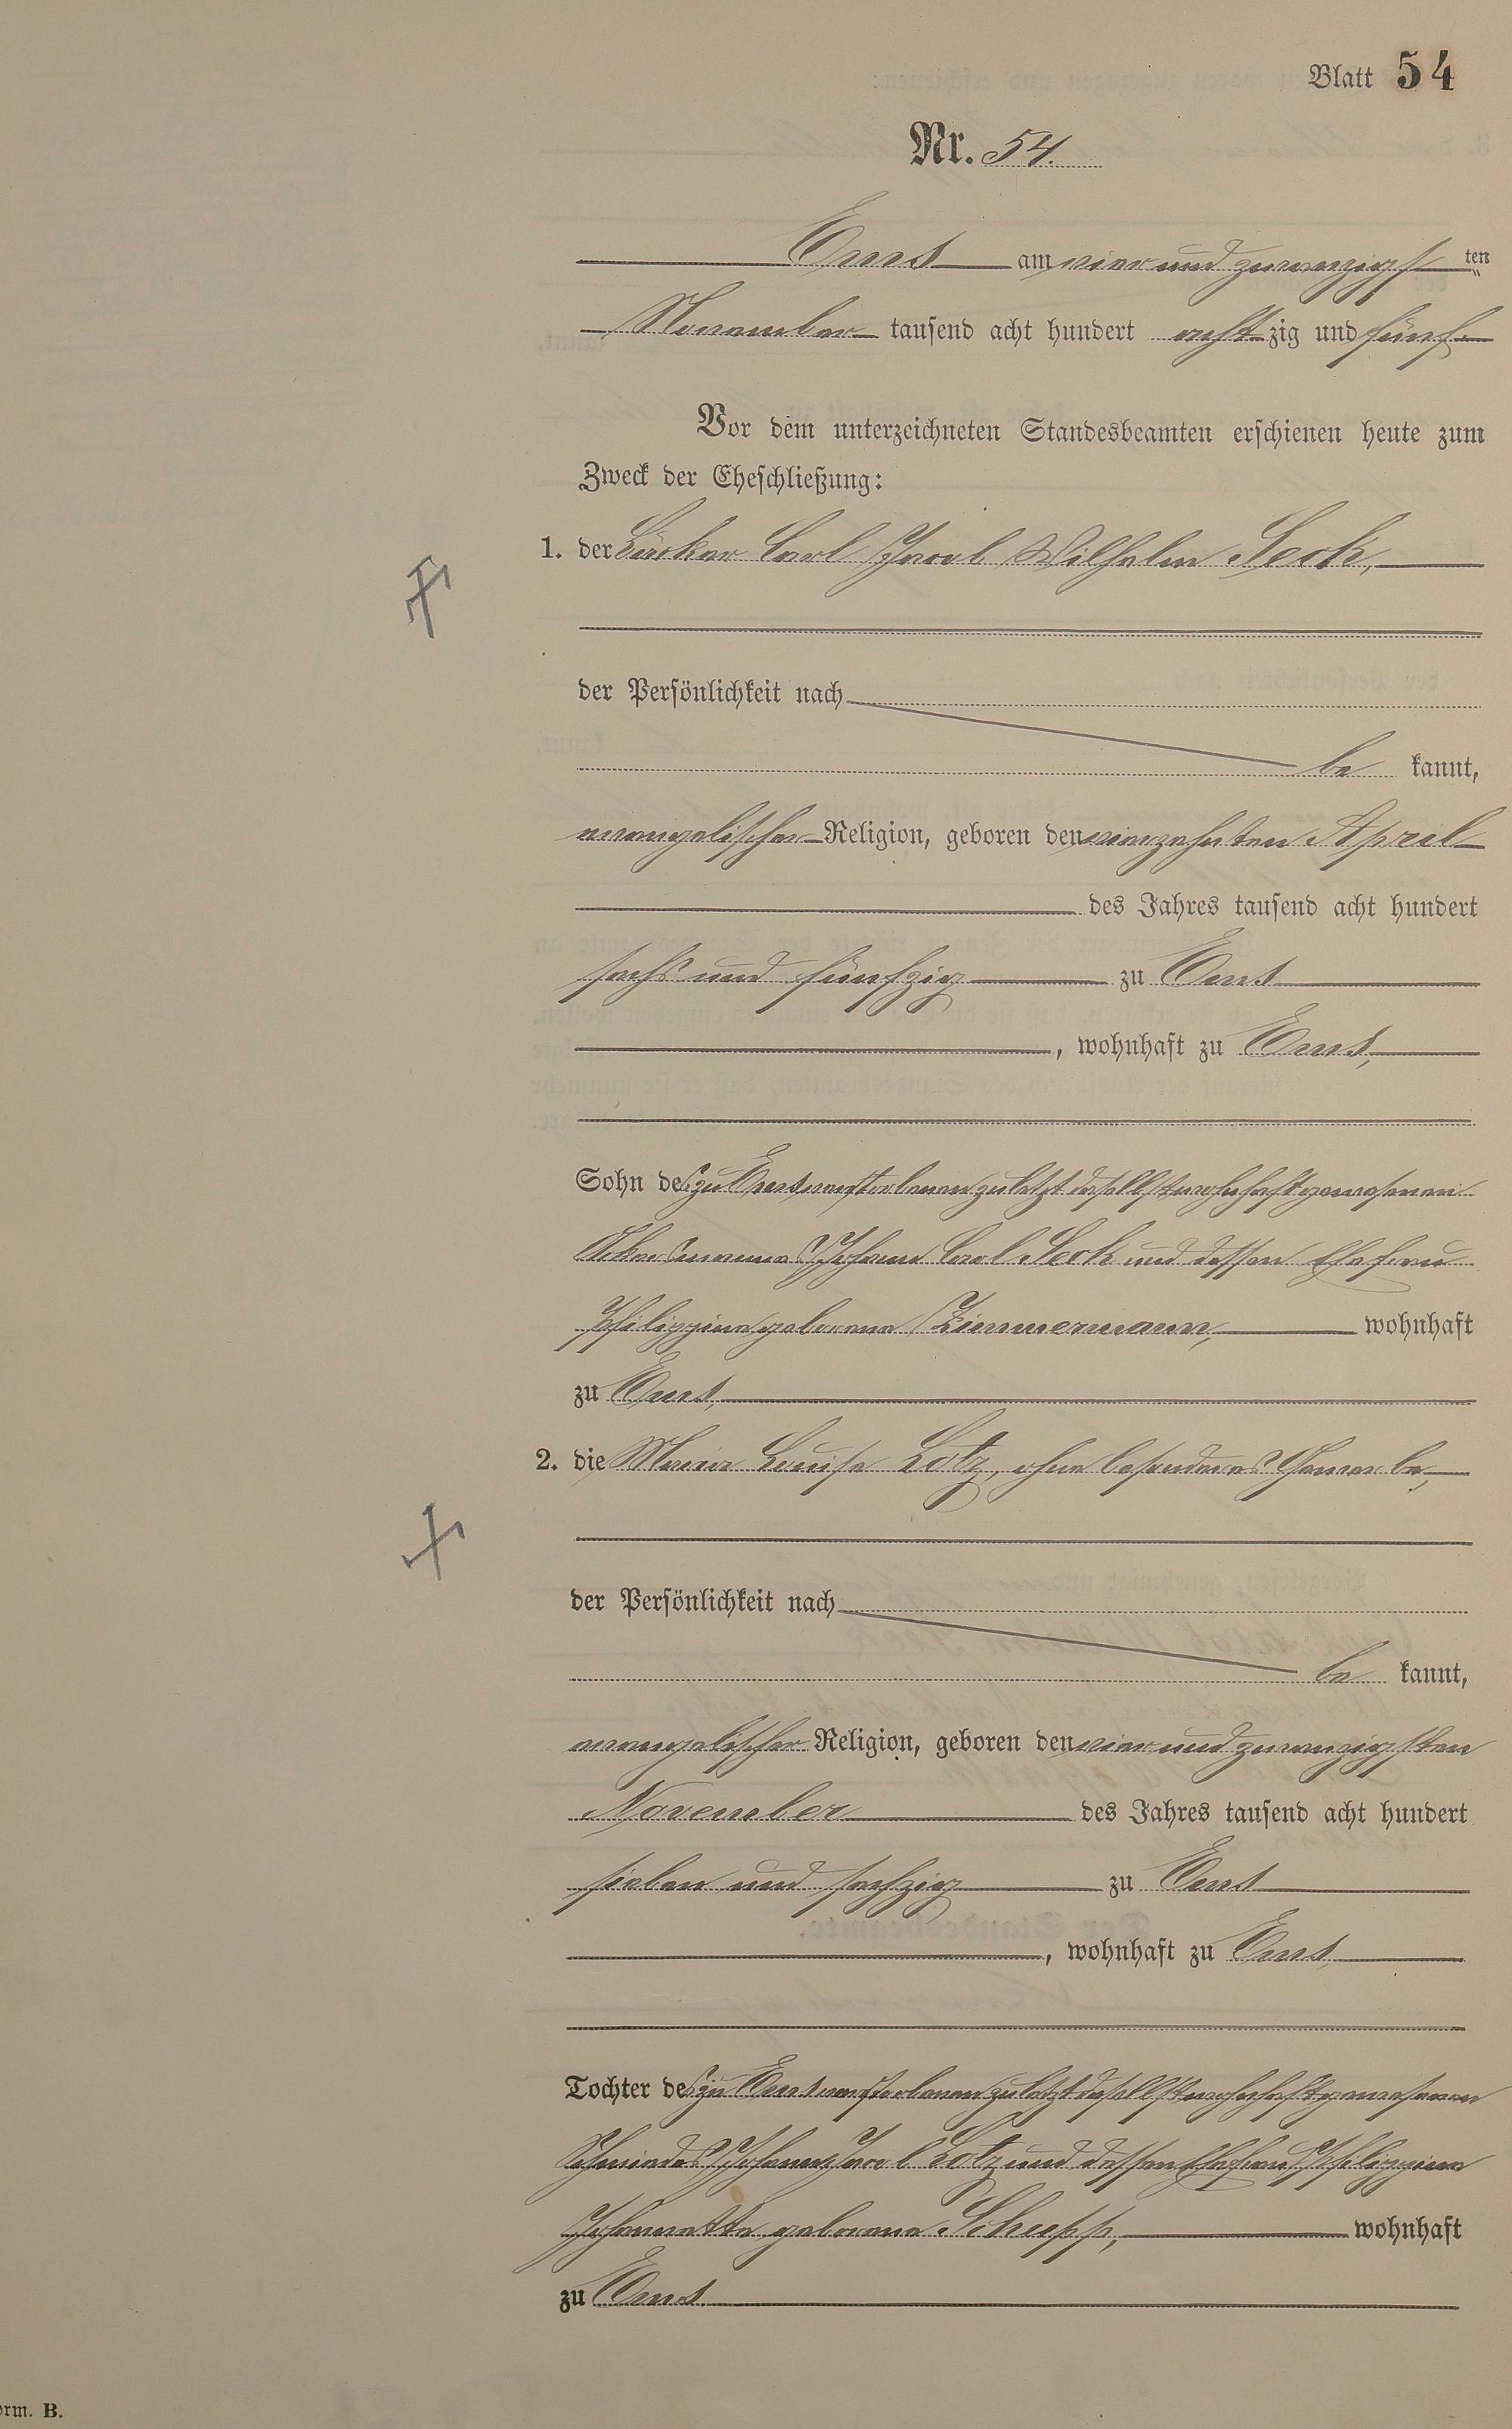 Blatt 54
Nr. 54.
Ems am vier und zwanzigsten
November tausend acht hundert achtzig und fünf
Vor dem unterzeichneten Standesbeamten erschienen heute zum
Zweck der Eheschließung:
1. der Bäcker Carl Jacob Wilhelm Seck,
der Persönlichkeit nach
be kannt,
evangelischer Religion, geboren den vierzehnten April
des Jahres tausend acht hundert
sechs und fünfzig zu Ems
, wohnhaft zu Ems,
Sohn des zu Ems verstorbenen zuletzt daselbst wohnhaft gewesenen
Ackermannes Johann Carl Seck und dessen Ehefrau
Philippine geborene Zimmermann, wohnhaft
zu Ems,
2. die Maria Louise Lotz, ohne besonderes Gewerbe,
der Persönlichkeit nach
be kannt,
evangelischer Religion, geboren den vier und zwanzigsten
November des Jahres tausend acht hundert
sieben und sechzig zu Ems
, wohnhaft zu Ems,
Tochter des zu Ems verstorbenen zuletzt daselbst wohnhaft gewesenen
Schmiedes Johann Jacob Lotz und dessen Ehefrau Philippine
Johannette geborene Schupp, wohnhaft
zu Ems.
orm. B.